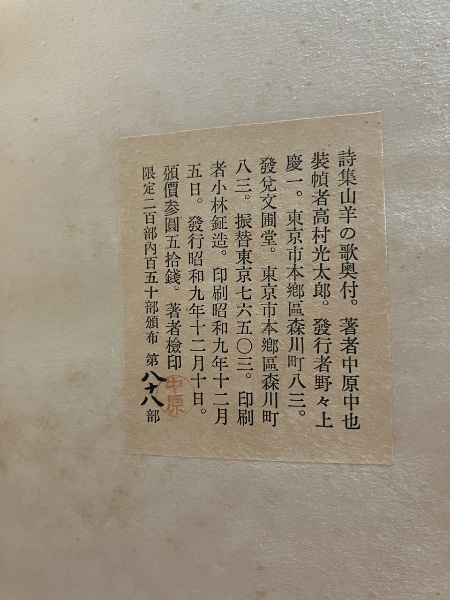 詩集山羊の歌奧付。著者中原中也
裝幀者高村光太郎。發行者野々上
慶一。東京市本鄕區森川町八三。
發兌文圃堂。東京市本鄕區森川町
八三。振替東京七六五〇三。印刷
者小林鉦造。印刷昭和九年十二月
五日。發行昭和九年十二月十日。
頒價參圓五拾錢。著者檢印
中原
限定二百部內百五十部頒布 第八十八部